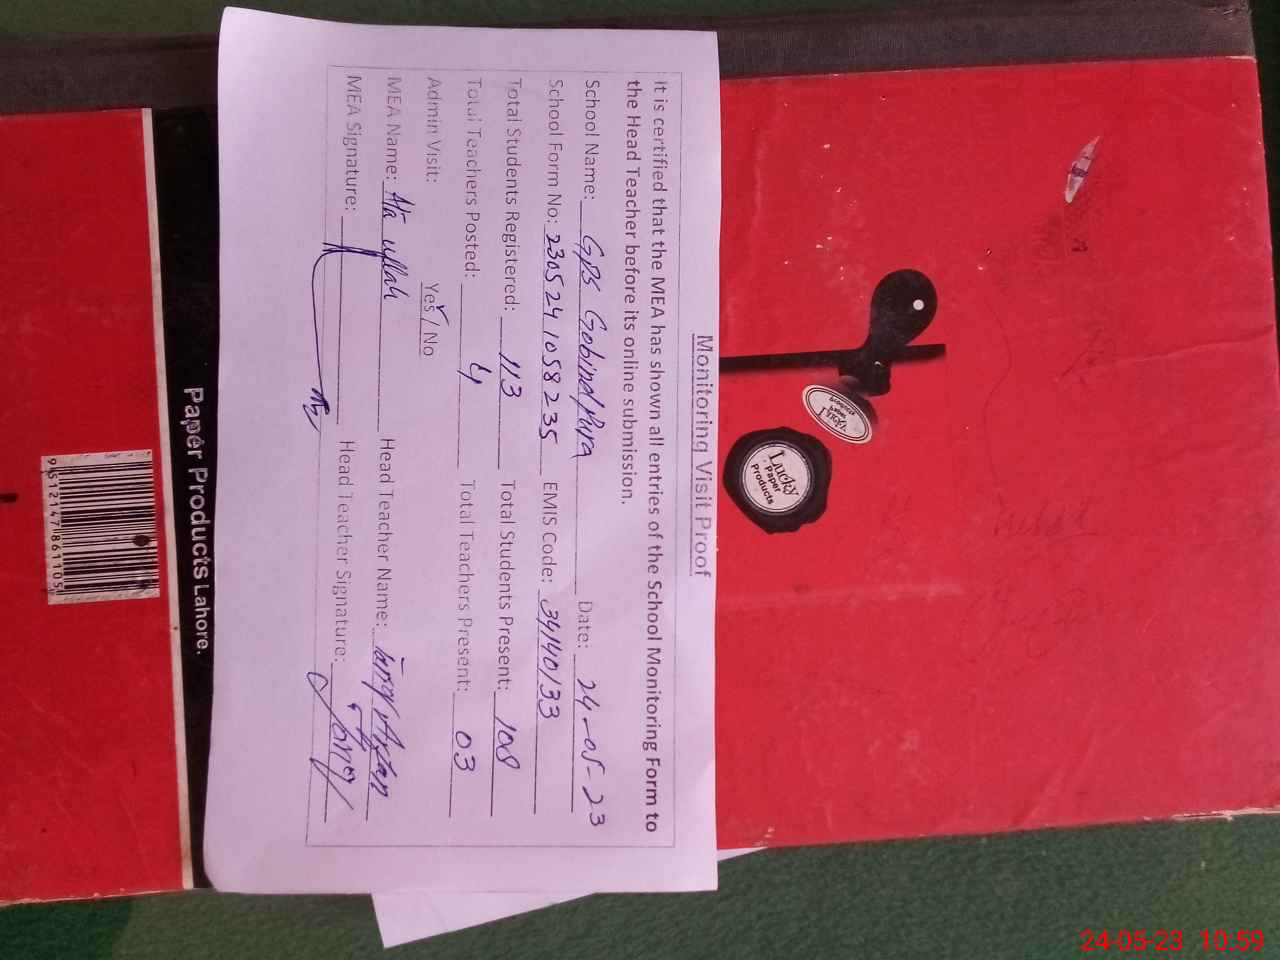 Monitoring Visit Proof
It is certified that the MEA has shown all entries of the School Monitoring Form to
the Head Teacher before its online submission.
School Name: GPS Gobindpura Date: 24-05-23
School Form No: 2305241058235 EMIS Code: 34140133
Total Students Registered: 113 Total Students Present: 108
Total Teachers Posted: 4 Total Teachers Present: 03
Admin Visit: Yes / No
MEA Name: Ata ullah Head Teacher Name:
MEA Signature: Head Teacher Signature:
Lucky
Paper
Products
Paper Products Lahore.
9512147861105
24-05-23 10:59